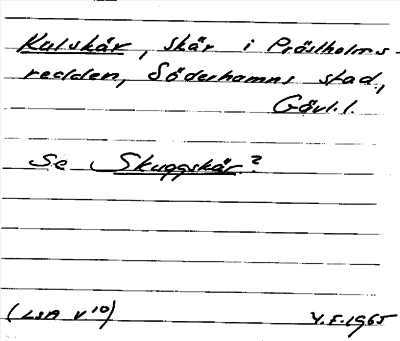 Kulskär, skär i Prästholms-
redden, Söderhamns stad,
Gävl.l.
Se Skuggskär?
(LSA V¹⁰) Y.F. 1965